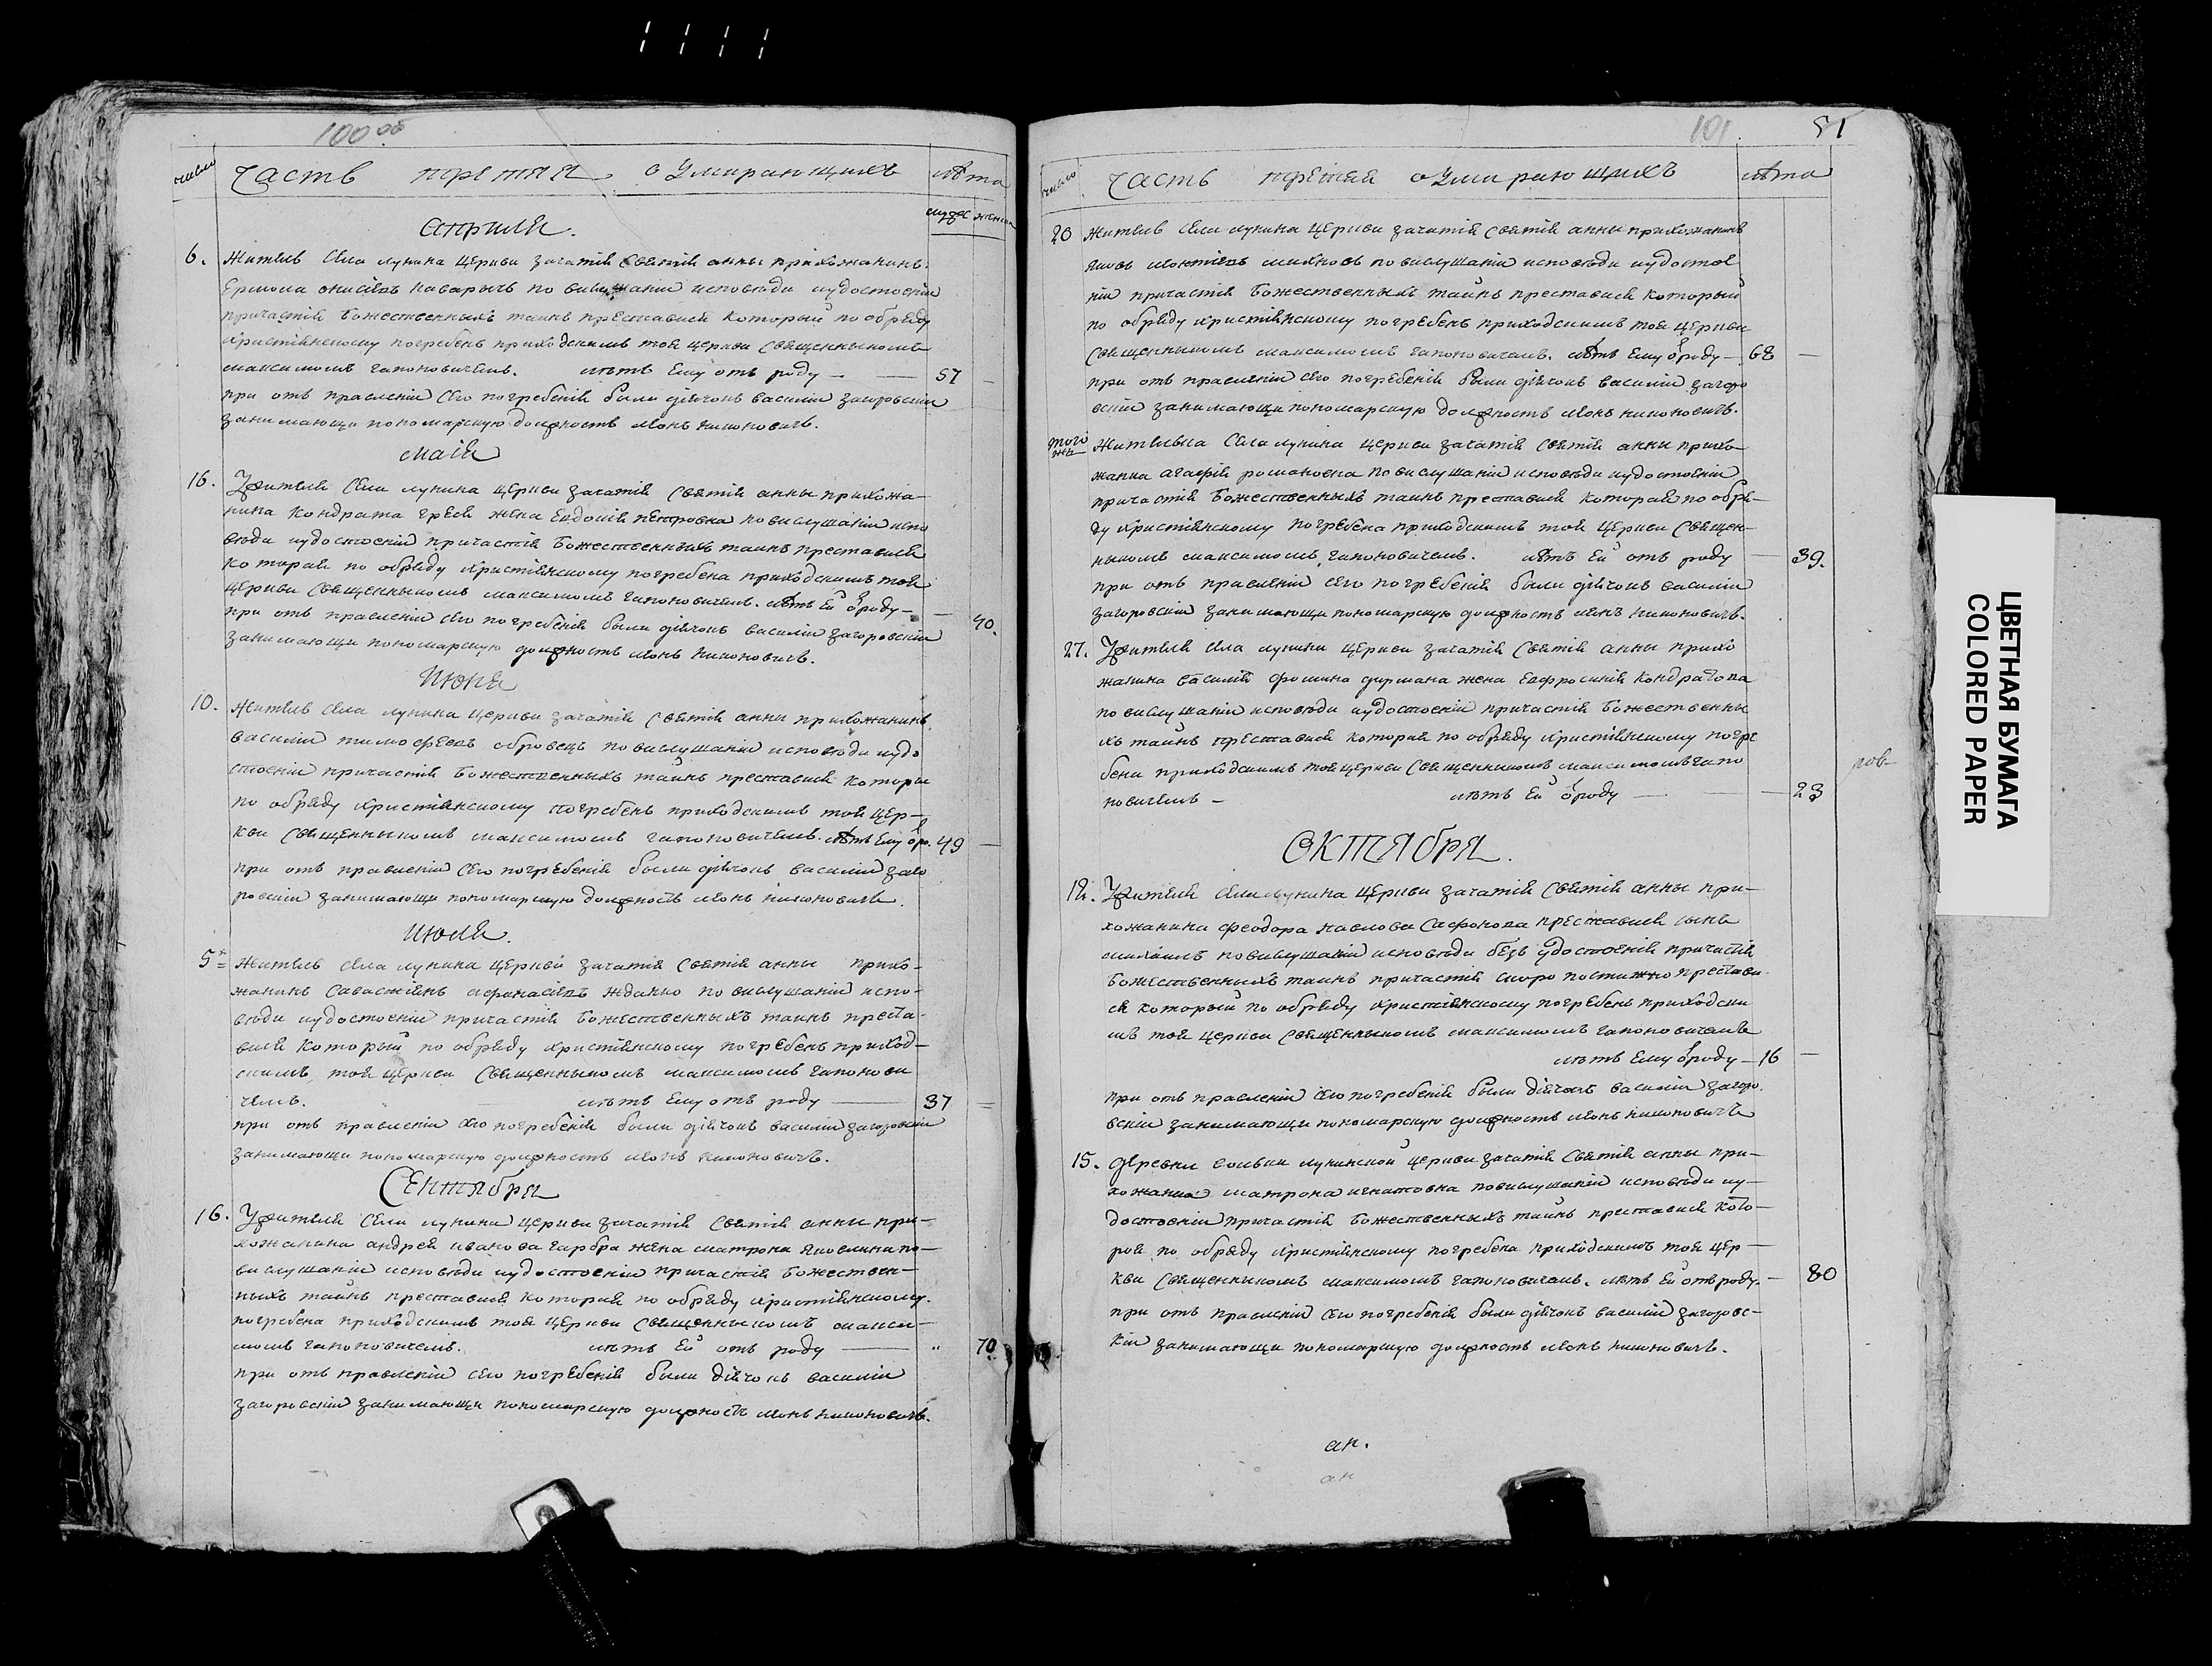 100 об
число Часть третия о Умирающихъ лѣта
мужес женск
априля.
6. Житель села лунина церкви зачатія Святія анны прихожанинъ
Ермола онисіевъ  по вислушаніи исповѣди иудостоеніи
причастія Божественныхъ таинъ преставися который по обряду
христіянскому погребенъ приходскимъ тоя церкви Священныкомъ
максимомъ гапоновичемъ. лѣтъ Ему отъ роду — 57 —
при отъ правленіи сего погребенія были діячокъ василіи загоровскіи
занимающи пономарскую должность леонъ никоновичъ.
маія
16. Жителя Села лунина церкви зачатія Святія анны прихожа-
нина Кондрата греся жена Евдокія петровна по вислушаніи испо
вѣди иудостоеніи причастія Божественныхъ таинъ преставися
Которая по обряду христіянскому погребена приходскимъ тоя
церкви Священныкомъ максимомъ гапоновичемъ. лѣтъ Ей о роду — 90.
при отъ правленіи сего погребенія были діячокъ василіи загоровскіи
занимающи пономарскую должность леонъ никоновичъ.
Июня
10. Житель села лунина церкви зачатія Святія анны прихожанинъ
василіи тимофеевъ обровецъ по вислушаніи исповѣди иудо
стоеніи причастія Божественныхъ таинъ преставися которы
по обряду христіянскому погребенъ приходскимъ тоя цер-
кви Священныкомъ максимомъ гапоновичемъ. лѣтъ Ему о ро. 49 —
при отъ правленіи сего погребенія были діячокъ василіи заго
ровскіи занимающи пономарскую должность леонъ никоновичъ.
Июля.
5 Житель села лунина церкви зачатія Святія анны прихо-
жанинъ Савастіянъ афанасіевъ жданко по вислушаніи испо-
вѣди иудостоеніи причастія Божественныхъ таинъ преста-
вися Который по обряду христіянскому погребенъ приход-
скимъ тоя церкви Священныкомъ максимомъ гапонови
чемъ. лѣтъ Ему отъ роду — 37 —
при отъ правленіи сего погребенія были діячокъ василіи загоровскіи
занимающи пономарскую должность леонъ никоновичъ.
Сентября
16. Жителя Села лунина церкви зачатія Святія анны при-
хожанина андрея иванова гарбра жена матрона яковлина по-
вислушаніи исповѣди иудостоеніи причастія Божествен-
ныхъ таинъ преставися которая по обряду христіянскому.
погребена приходскимъ тоя церкви Священныкомъ макси-
момъ гапоновичемъ. лѣтъ Ей отъ роду — „ 70.
при отъ правленіи сего погребенія были діячокъ василіи
загоровскіи занимающи пономарскую должность леонъ никоновичъ.
101 51
число Часть третия о Умирающихъ лѣта
20 Житель села лунина церкви зачатія Святія анны прихожанинъ
яковъ леонтіевъ михновъ по вислушаніи исповѣди иудостое
ніи причастія Божественныхъ таинъ преставися который
по обряду христіянскому погребенъ приходскимъ тоя церкви
Священныкомъ максимомъ гапоновичемъ. лѣтъ Ему о роду — 68 —
при отъ правленіи сего погребенія были діячокъ василіи загоро
вскіи занимающи пономарскую должность леонъ никоновичъ.
того же Жителька Села лунина церкви зачатія Святія анны прихо
жанка агафія романовна по вислушаніи исповѣди иудостоеніи
причастія Божественныхъ таинъ преставися которая по обря-
ду христіянскому погребена приходскимъ тоя церкви Священ-
ныкомъ максимомъ гапоновичемъ. лѣтъ Ей отъ роду — 39.
при отъ правленіи сего погребенія были діячокъ василіи
загоровскіи занимающи пономарскую должность леонъ никоновичъ.
27. Жителя села лунина церкви зачатія Святія анны прихо
жанина василія фомина дирмана жена Евфросинія Кондратова
по вислушаніи исповѣди иудостоеніи причастія Божественны
хъ таинъ преставися которая по обряду христіянскому погре
бена приходскимъ тоя церкви Священникомъ максимомъ гапо
новичемъ — лѣтъ Ей о роду — 23
ров
Октября.
12. Жителя села лунина церкви зачатія Святія анны при-
хожанина феодора павлова Сафонова преставися сынъ
михаилъ по вислушаніи исповѣди безъ удостоенія причастія
Божественныхъ таинъ причастія скоро постижно престави
ся который по обряду христіянскому погребенъ приходски
мъ тоя церкви Священныкомъ максимомъ гапоновичемъ
лѣтъ Ему о роду — 16 —
при отъ правленіи сего погребенія были діячокъ василіи загоро.
вскіи занимающи пономарскую должность леонъ никоновичъ
15. деревни  лунинской церкви зачатія Святія анны при-
хожанка матрона игнатовна по вислушаніи исповѣди иу-
достоеніи причастія Божественныхъ таинъ преставися кото-
рая по обряду христіянскому погребена приходскимъ тоя цер-
кви Священныкомъ максимомъ гапоновичемъ. лѣтъ Ей отъ роду. — 80
при отъ правленіи сего погребенія были діячокъ василіи загоровс-
кіи занимающи пономарскую должность леонъ никоновичъ.
ап.
ап
ЦВЕТНАЯ БУМАГА
COLORED PAPER